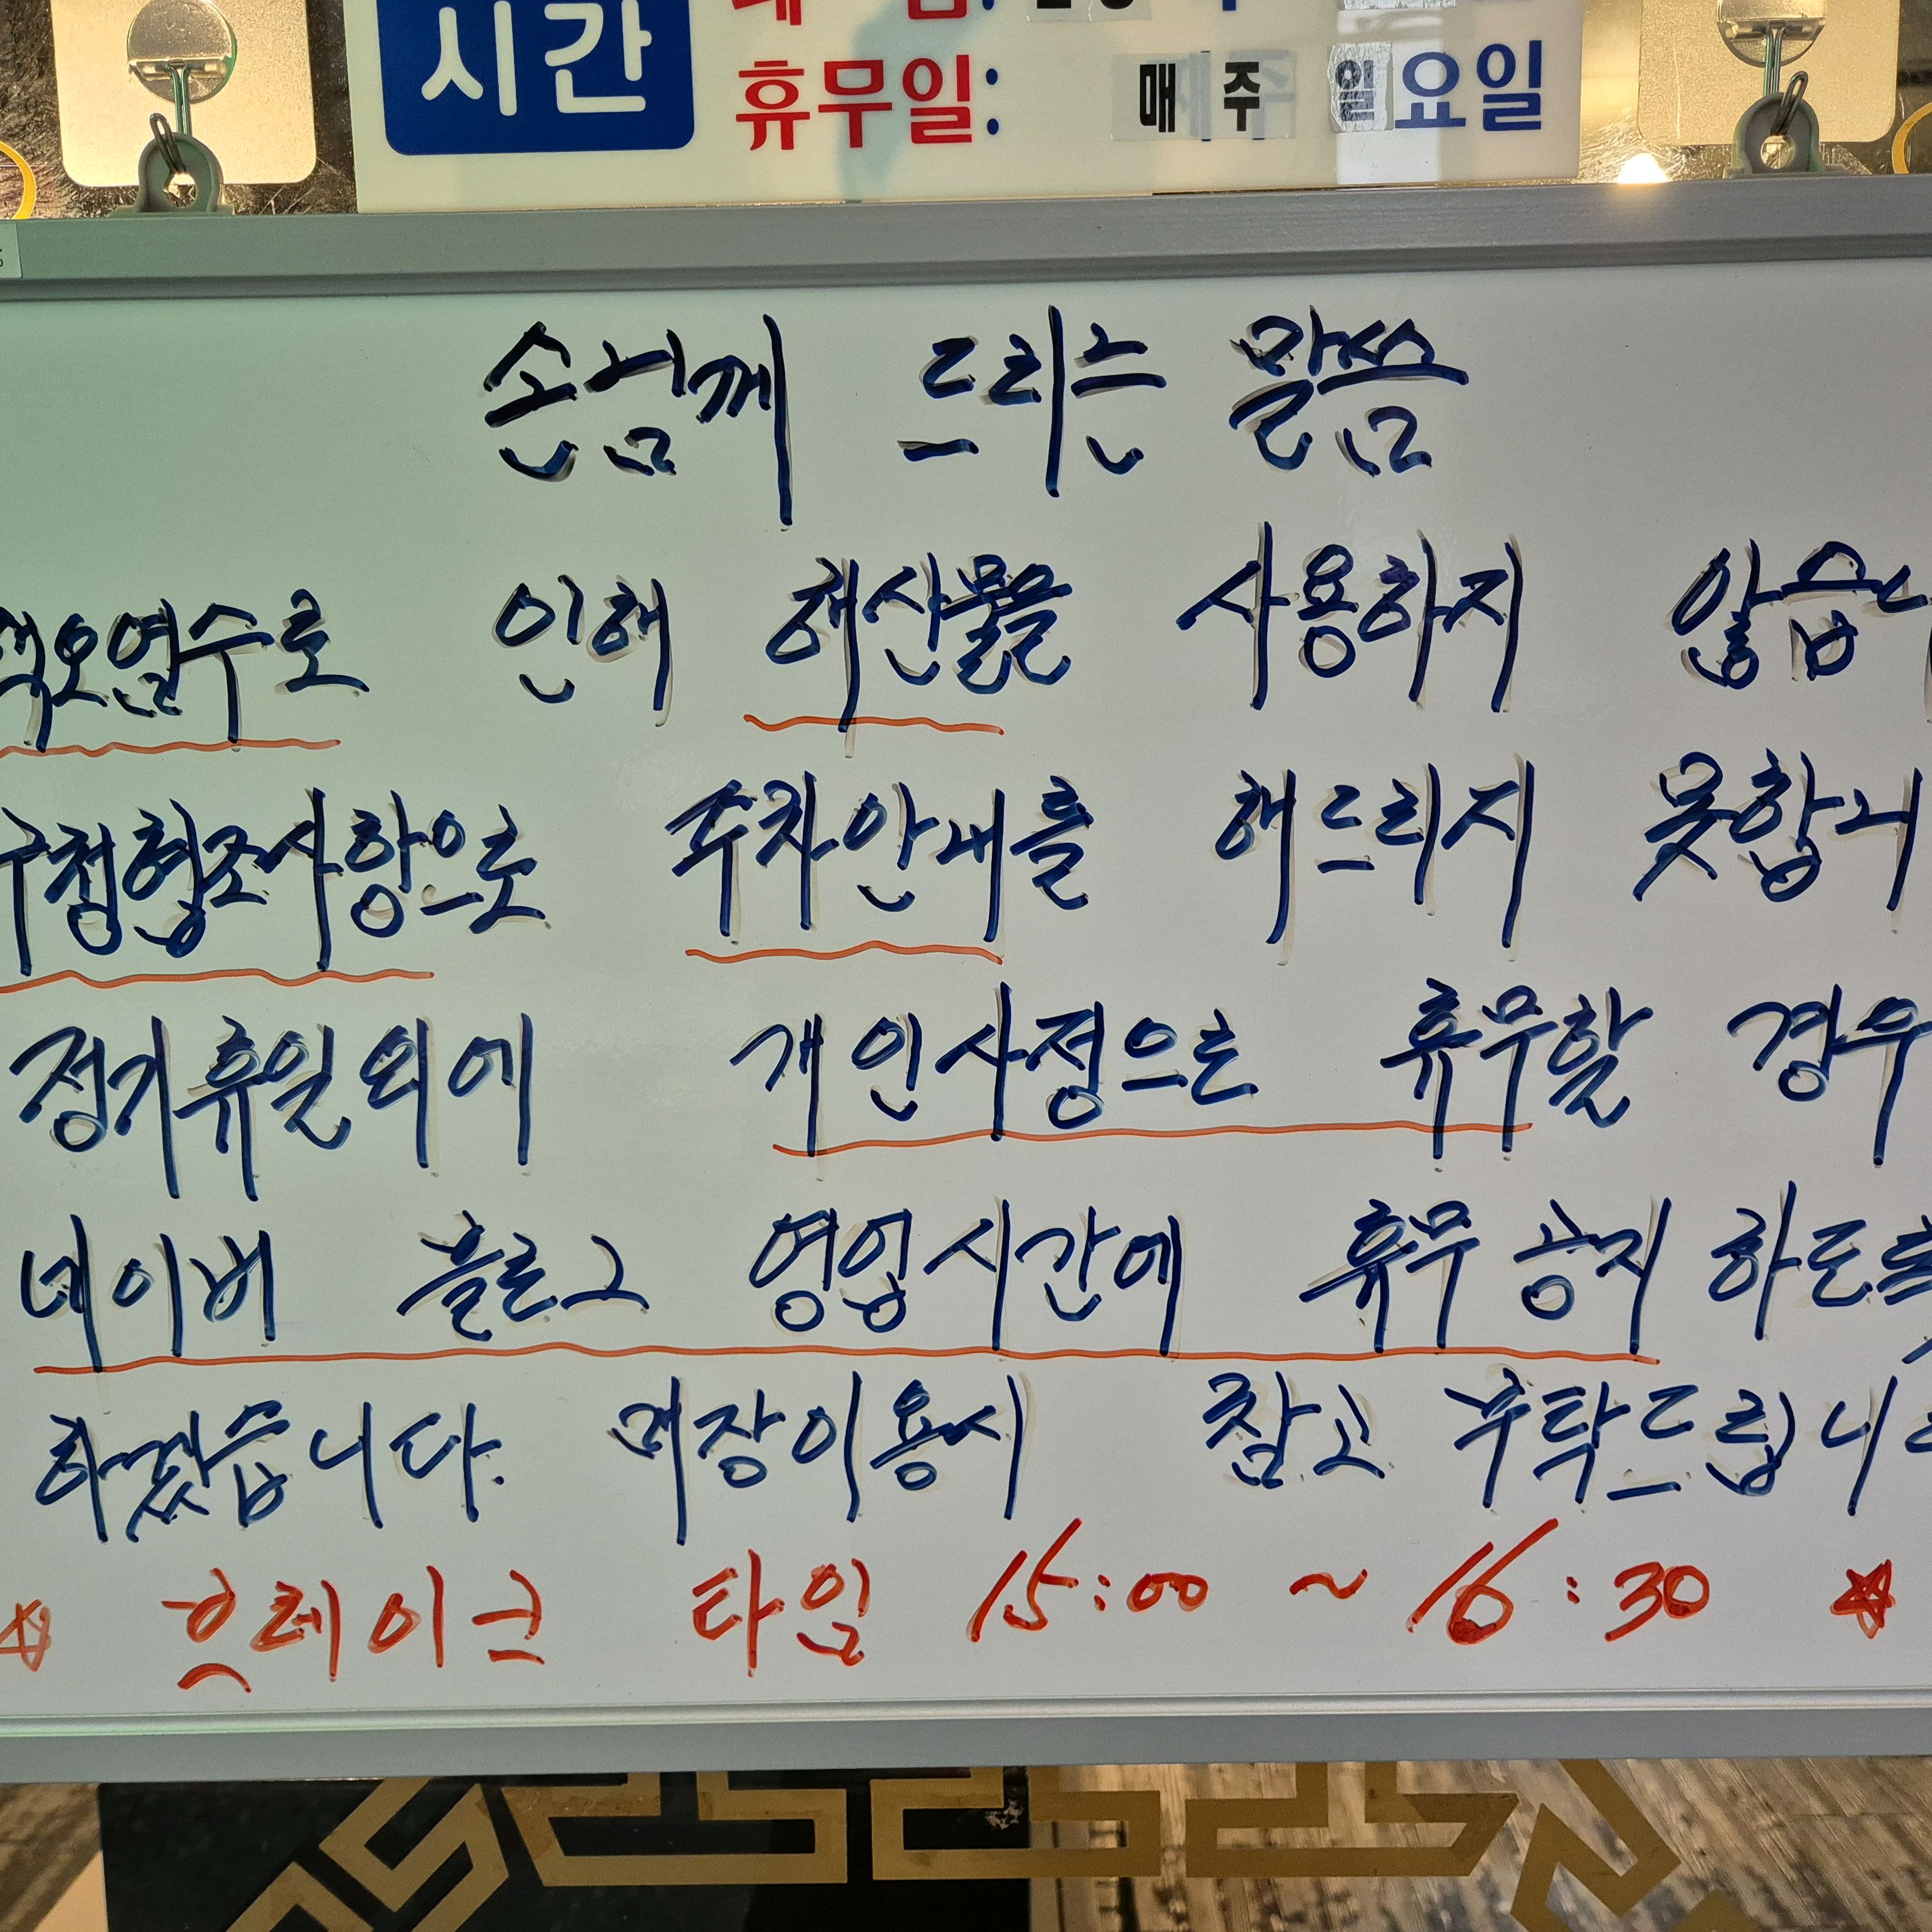 시간
휴무일: 매주 일요일
손님께 드리는 말씀
오염수로 인해 해산물을 사용하지 않습니
구청협조사항으로 주차안내를 해드리지 못합니
정기휴일외에 개인사정으로 휴무할 경우
네이버 블로그 영업시간에 휴무 공지 하도록
하겠습니다. 매장이용시 참고 부탁드립니
☆ 브레이크 타임 15:00 ~ 16:30 ☆